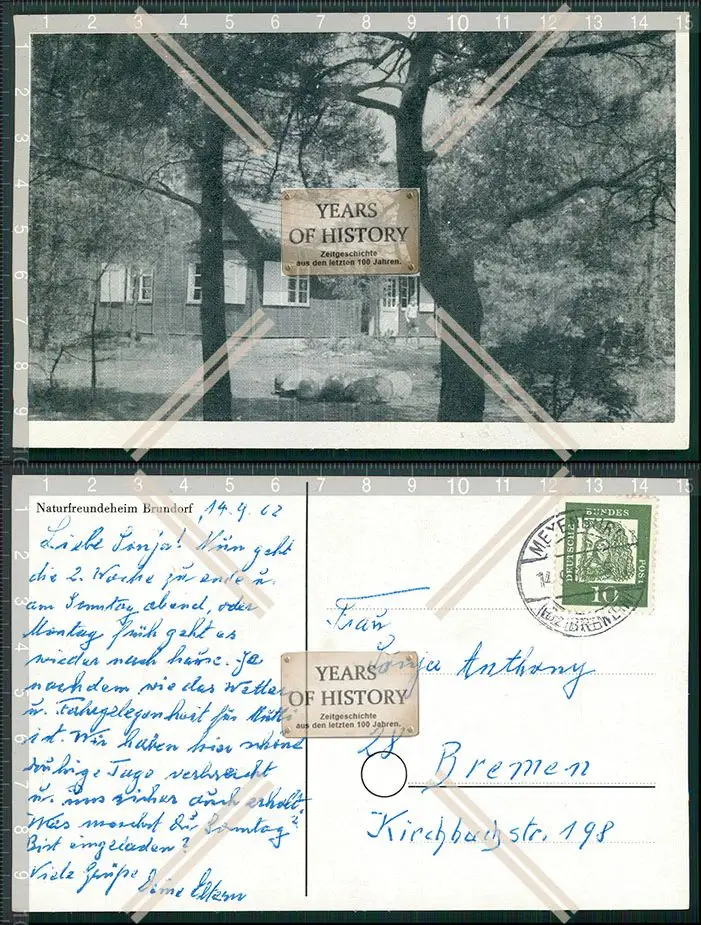 YEARS
OF HISTORY
Zeitgeschichte
aus den letzten 100 Jahren.
Naturfreundeheim Brundorf
14.9.62
Liebe Sonja! Nun geht
die 2. Woche zu ende u.
am Sonntag abend, oder
Montag früh geht es
wieder nach hause. Je
nachdem wie das Wetter
u. Fahrgelegenheit für Mutti
ist. Wir haben hier schöne
ruhige Tage verbracht
u. uns sicher auch erholt.
Was machst Du Sonntag?
Bist eingeladen?
Viele Grüße
Deine Eltern
DEUTSCHE BUNDESPOST
10
MEYENBURG
(BZ. BREMEN)
Frau
Sonja Anthony
YEARS
OF HISTORY
Zeitgeschichte
aus den letzten 100 Jahren.
28
Bremen
Kirchbachstr. 198